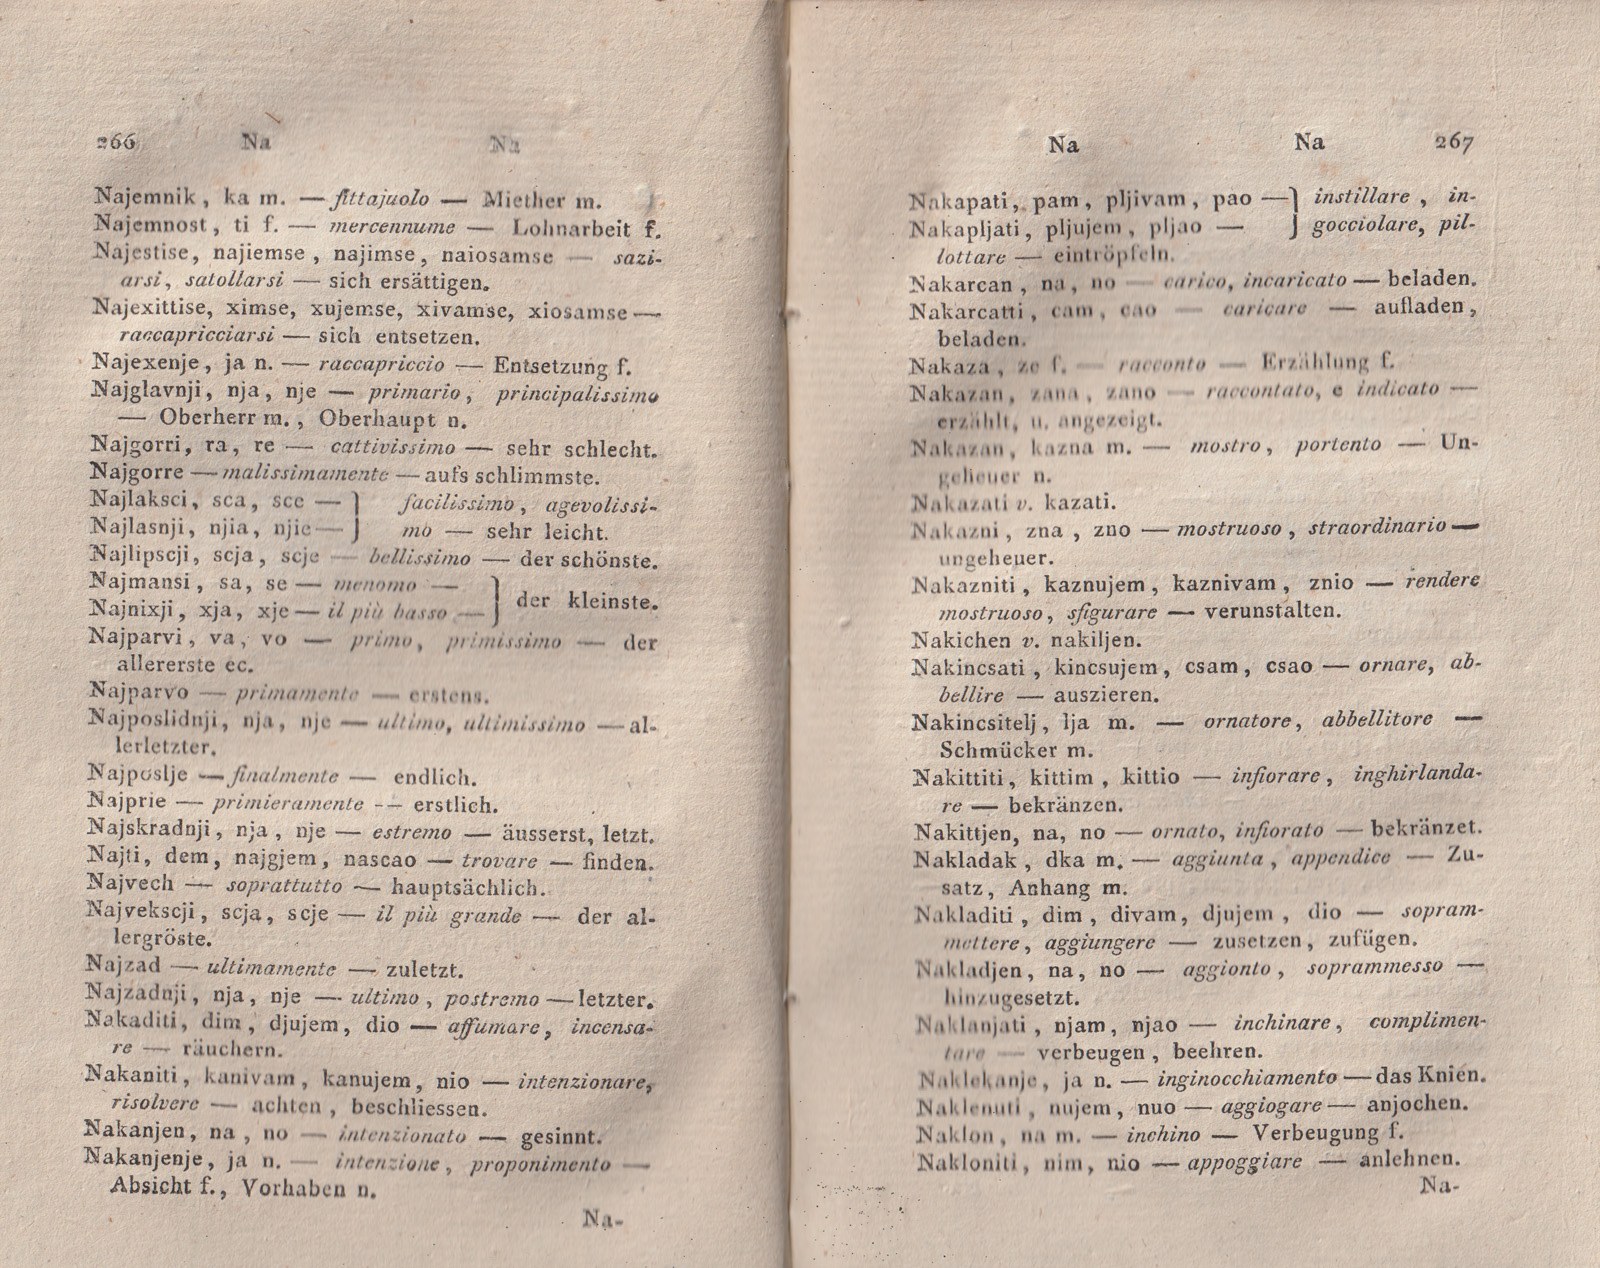 266 Na Na
Najemnik, ka m. — fittajuolo — Miether m.
Najemnost, ti f. — mercennume — Lohnarbeit f.
Najestise, najiemse, najimse, naiosamse — sazi-
arsi, satollarsi — sich ersättigen.
Najexittise, ximse, xujemse, xivamse, xiosamse —
raccapricciarsi — sich entsetzen.
Najexenje, ja n. — raccapriccio — Entsetzung f.
Najglavnji, nja, nje — primario, principalissimo
— Oberherr m., Oberhaupt n.
Najgorri, ra, re — cattivissimo — sehr schlecht.
Najgorre — malissimamente — aufs schlimmste.
Najlaksci, sca, sce — } facilissimo, agevolissi-
Najlasnji, njia, njie — } mo — sehr leicht.
Najlipscji, scja, scje — bellissimo — der schönste.
Najmansi, sa, se — menomo — }
Najnixji, xja, xje — il più basso — } der kleinste.
Najparvi, va, vo — primo, primissimo — der
allererste ec.
Najparvo — primamente — erstens.
Najposlidnji, nja, nje — ultimo, ultimissimo — al-
lerletzter.
Najposlje — finalmente — endlich.
Najprie — primieramente — erstlich.
Najskradnji, nja, nje — estremo — äusserst, letzt.
Najti, dem, najgjem, nascao — trovare — finden.
Najvech — soprattutto — hauptsächlich.
Najvekscji, scja, scje — il più grande — der al-
lergröste.
Najzad — ultimamente — zuletzt.
Najzadnji, nja, nje — ultimo, postremo — letzter.
Nakaditi, dim, djujem, dio — affumare, incensa-
re — räuchern.
Nakaniti, kanivam, kanujem, nio — intenzionare,
risolvere — achten, beschliessen.
Nakanjen, na, no — intenzionato — gesinnt.
Nakanjenje, ja n. — intenzione, proponimento —
Absicht f., Vorhaben n.
Na-
Na Na 267
Nakapati, pam, pljivam, pao — } instillare, in-
Nakapljati, pljujem, pljao — } gocciolare, pil-
lottare — eintröpfeln.
Nakarcan, na, no — carico, incaricato — beladen.
Nakarcatti, cam, cao — caricare — aufladen,
beladen.
Nakaza, ze f. — racconto — Erzählung f.
Nakazan, zana, zano — raccontato, e indicato —
erzählt, u. angezeigt.
Nakazan, kazna m. — mostro, portento — Un-
geheuer n.
Nakazati v. kazati.
Nakazni, zna, zno — mostruoso, straordinario —
ungeheuer.
Nakazniti, kaznujem, kaznivam, znio — rendere
mostruoso, sfigurare — verunstalten.
Nakichen v. nakiljen.
Nakincsati, kincsujem, csam, csao — ornare, ab-
bellire — auszieren.
Nakincsitelj, lja m. — ornatore, abbellitore —
Schmücker m.
Nakittiti, kittim, kittio — infiorare, inghirlanda-
re — bekränzen.
Nakittjen, na, no — ornato, infiorato — bekränzet.
Nakladak, dka m. — aggiunta, appendice — Zu-
satz, Anhang m.
Nakladiti, dim, divam, djujem, dio — sopram-
mettere, aggiungere — zusetzen, zufügen.
Nakladjen, na, no — aggionto, soprammesso —
hinzugesetzt.
Naklanjati, njam, njao — inchinare, complimen-
tare — verbeugen, beehren.
Naklekanje, ja n. — inginocchiamento — das Knien.
Naklenuti, nujem, nuo — aggiogare — anjochen.
Naklon, na m. — inchino — Verbeugung f.
Nakloniti, nim, nio — appoggiare — anlehnen.
Na-